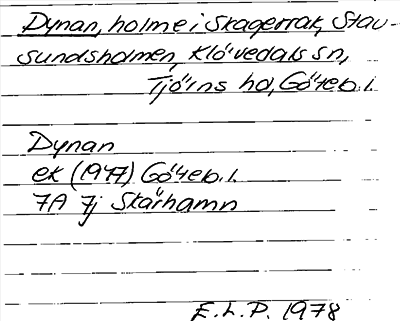 Dynan, holme i Skagerrak, Stav-
sundsholmen, Klövedals sn,
Tjörns hd, Göteb. l.
Dynan
ek (1947) Göteb. l.
7A 7j Skärhamn
E.L.P. 1978